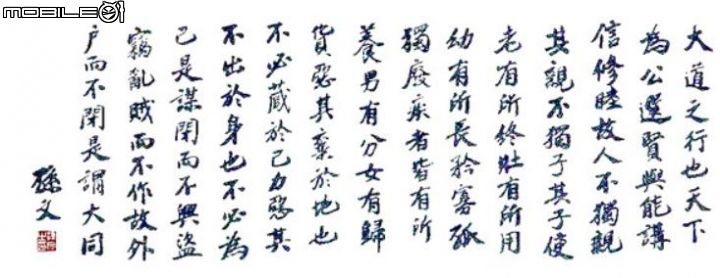 大道之行也天下
為公選賢與能講
信修睦故人不獨親
其親不獨子其子使
老有所終壯有所用
幼有所長矜寡孤
獨廢疾者皆有所
養男有分女有歸
貨惡其棄於地也
不必藏於己力惡其
不出於身也不必為
己是謀閉而不興盜
竊亂賊而不作故外
戶而不閉是謂大同
孫文
MOBILE01